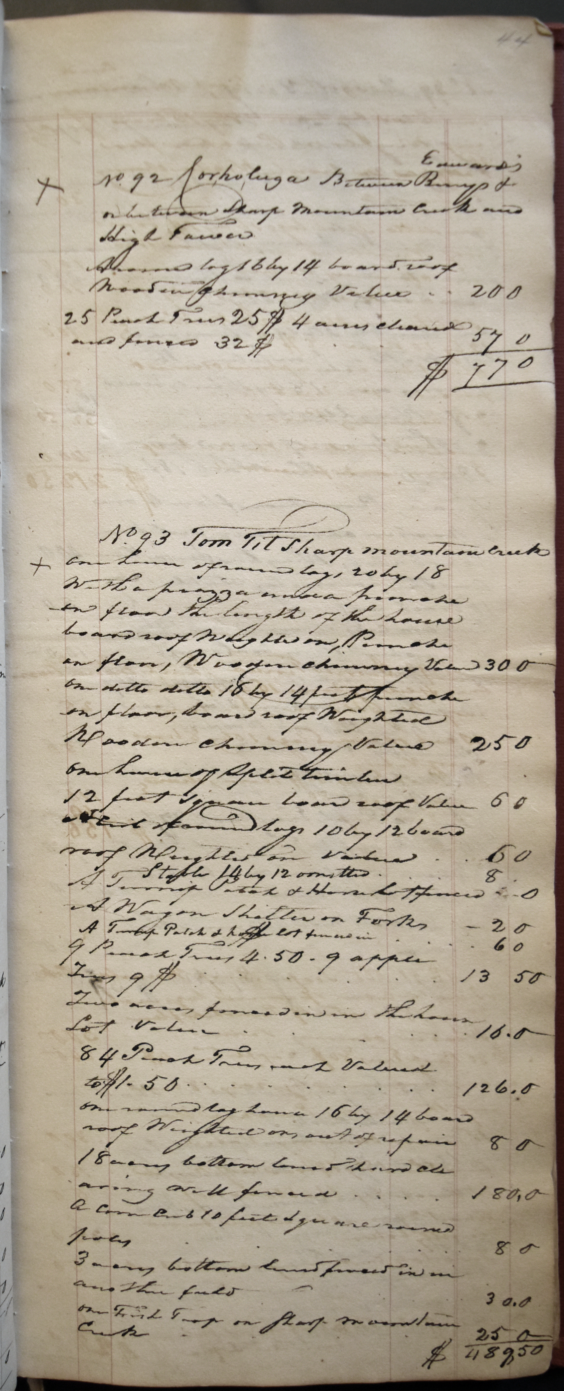 44
Edwards
No 92 Between &
or between Sharp Mountain Creek and
High Tower
A round log 16 by 14 board roof
Wooden Chimney Value . . 20 0
25 Peach Trees 25$ 4 acres cleared
and fenced 32$ . . 57 0
$ 77 0
No 93 Tom Tit Sharp mountain Creek
one house of round logs, 20 by 18
With a piazza puncheon
on floor the length of the house
board roof Weighted on, Puncheon
on floor, Wooden Chimney Value 30 0
on ditto ditto 16 by 14 feet puncheon
on floor, board roof Weighted
Wooden Chimney Value 25 0
one house of Split timber
12 feet Square board roof Value 6 0
Crib of round logs 10 by 12 board
roof Weighted on Value . . 6 0
Stable 14 by 12 omitted . . 8
A Turnip Patch & Horse lot fenced 0
A Wagon Shelter on Forks 2 0
A Turnip Patch & horse lot fenced in . . 6 0
9 Peach Trees 4.50 - 9 apple
Trees 9$ . . 13 50
Two acres fenced in in the house
Lot Value . . 16.0
84 Peach Trees each Valued
to $1.50 . . 126.0
one round log house 16 by 14 board
roof Weighted on out of repair 8 0
18 acres bottom land hard cle
aring well fenced . . 180.0
A corn Crib 10 feet Square round
poles . . 8 0
3 acres bottom land fenced in in
another field 30.0
one Fish Trap on Sharp mountain
Creek 25 0
$ 489,50